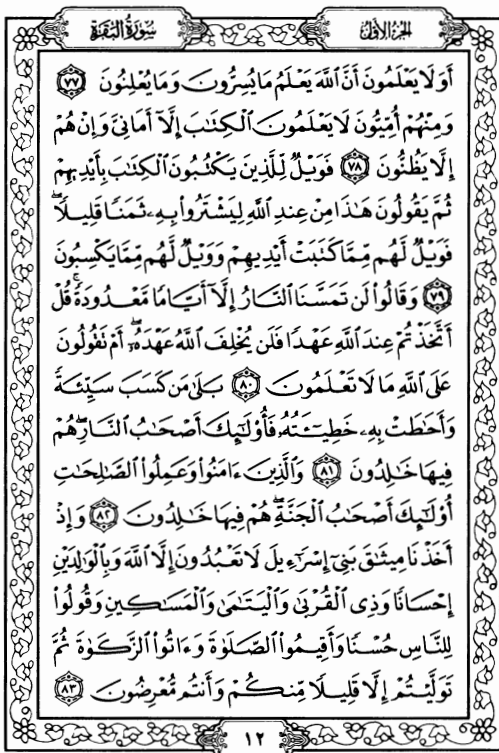 سورة البقرة
الجزء الأول
أَوَلَا يَعْلَمُونَ أَنَّ ٱللَّهَ يَعْلَمُ مَا يُسِرُّونَ وَمَا يُعْلِنُونَ ٧٧
وَمِنْهُمْ أُمِّيُّونَ لَا يَعْلَمُونَ ٱلْكِتَٰبَ إِلَّآ أَمَانِىَّ وَإِنْ هُمْ
إِلَّا يَظُنُّونَ ٧٨ فَوَيْلٌ لِّلَّذِينَ يَكْتُبُونَ ٱلْكِتَٰبَ بِأَيْدِيهِمْ
ثُمَّ يَقُولُونَ هَٰذَا مِنْ عِندِ ٱللَّهِ لِيَشْتَرُوا۟ بِهِۦ ثَمَنًا قَلِيلًا ۖ
فَوَيْلٌ لَّهُم مِّمَّا كَتَبَتْ أَيْدِيهِمْ وَوَيْلٌ لَّهُم مِّمَّا يَكْسِبُونَ
٧٩ وَقَالُوا۟ لَن تَمَسَّنَا ٱلنَّارُ إِلَّآ أَيَّامًا مَّعْدُودَةً ۚ قُلْ
أَتَّخَذْتُمْ عِندَ ٱللَّهِ عَهْدًا فَلَن يُخْلِفَ ٱللَّهُ عَهْدَهُۥٓ ۖ أَمْ تَقُولُونَ
عَلَى ٱللَّهِ مَا لَا تَعْلَمُونَ ٨٠ بَلَىٰ مَن كَسَبَ سَيِّئَةً
وَأَحَٰطَتْ بِهِۦ خَطِيٓـَٔتُهُۥ فَأُو۟لَٰٓئِكَ أَصْحَٰبُ ٱلنَّارِ ۖ هُمْ
فِيهَا خَٰلِدُونَ ٨١ وَٱلَّذِينَ ءَامَنُوا۟ وَعَمِلُوا۟ ٱلصَّٰلِحَٰتِ
أُو۟لَٰٓئِكَ أَصْحَٰبُ ٱلْجَنَّةِ ۖ هُمْ فِيهَا خَٰلِدُونَ ٨٢ وَإِذْ
أَخَذْنَا مِيثَٰقَ بَنِىٓ إِسْرَٰٓءِيلَ لَا تَعْبُدُونَ إِلَّا ٱللَّهَ وَبِٱلْوَٰلِدَيْنِ
إِحْسَانًا وَذِى ٱلْقُرْبَىٰ وَٱلْيَتَٰمَىٰ وَٱلْمَسَٰكِينِ وَقُولُوا۟
لِلنَّاسِ حُسْنًا وَأَقِيمُوا۟ ٱلصَّلَوٰةَ وَءَاتُوا۟ ٱلزَّكَوٰةَ ثُمَّ
تَوَلَّيْتُمْ إِلَّا قَلِيلًا مِّنكُمْ وَأَنتُم مُّعْرِضُونَ ٨٣
١٢